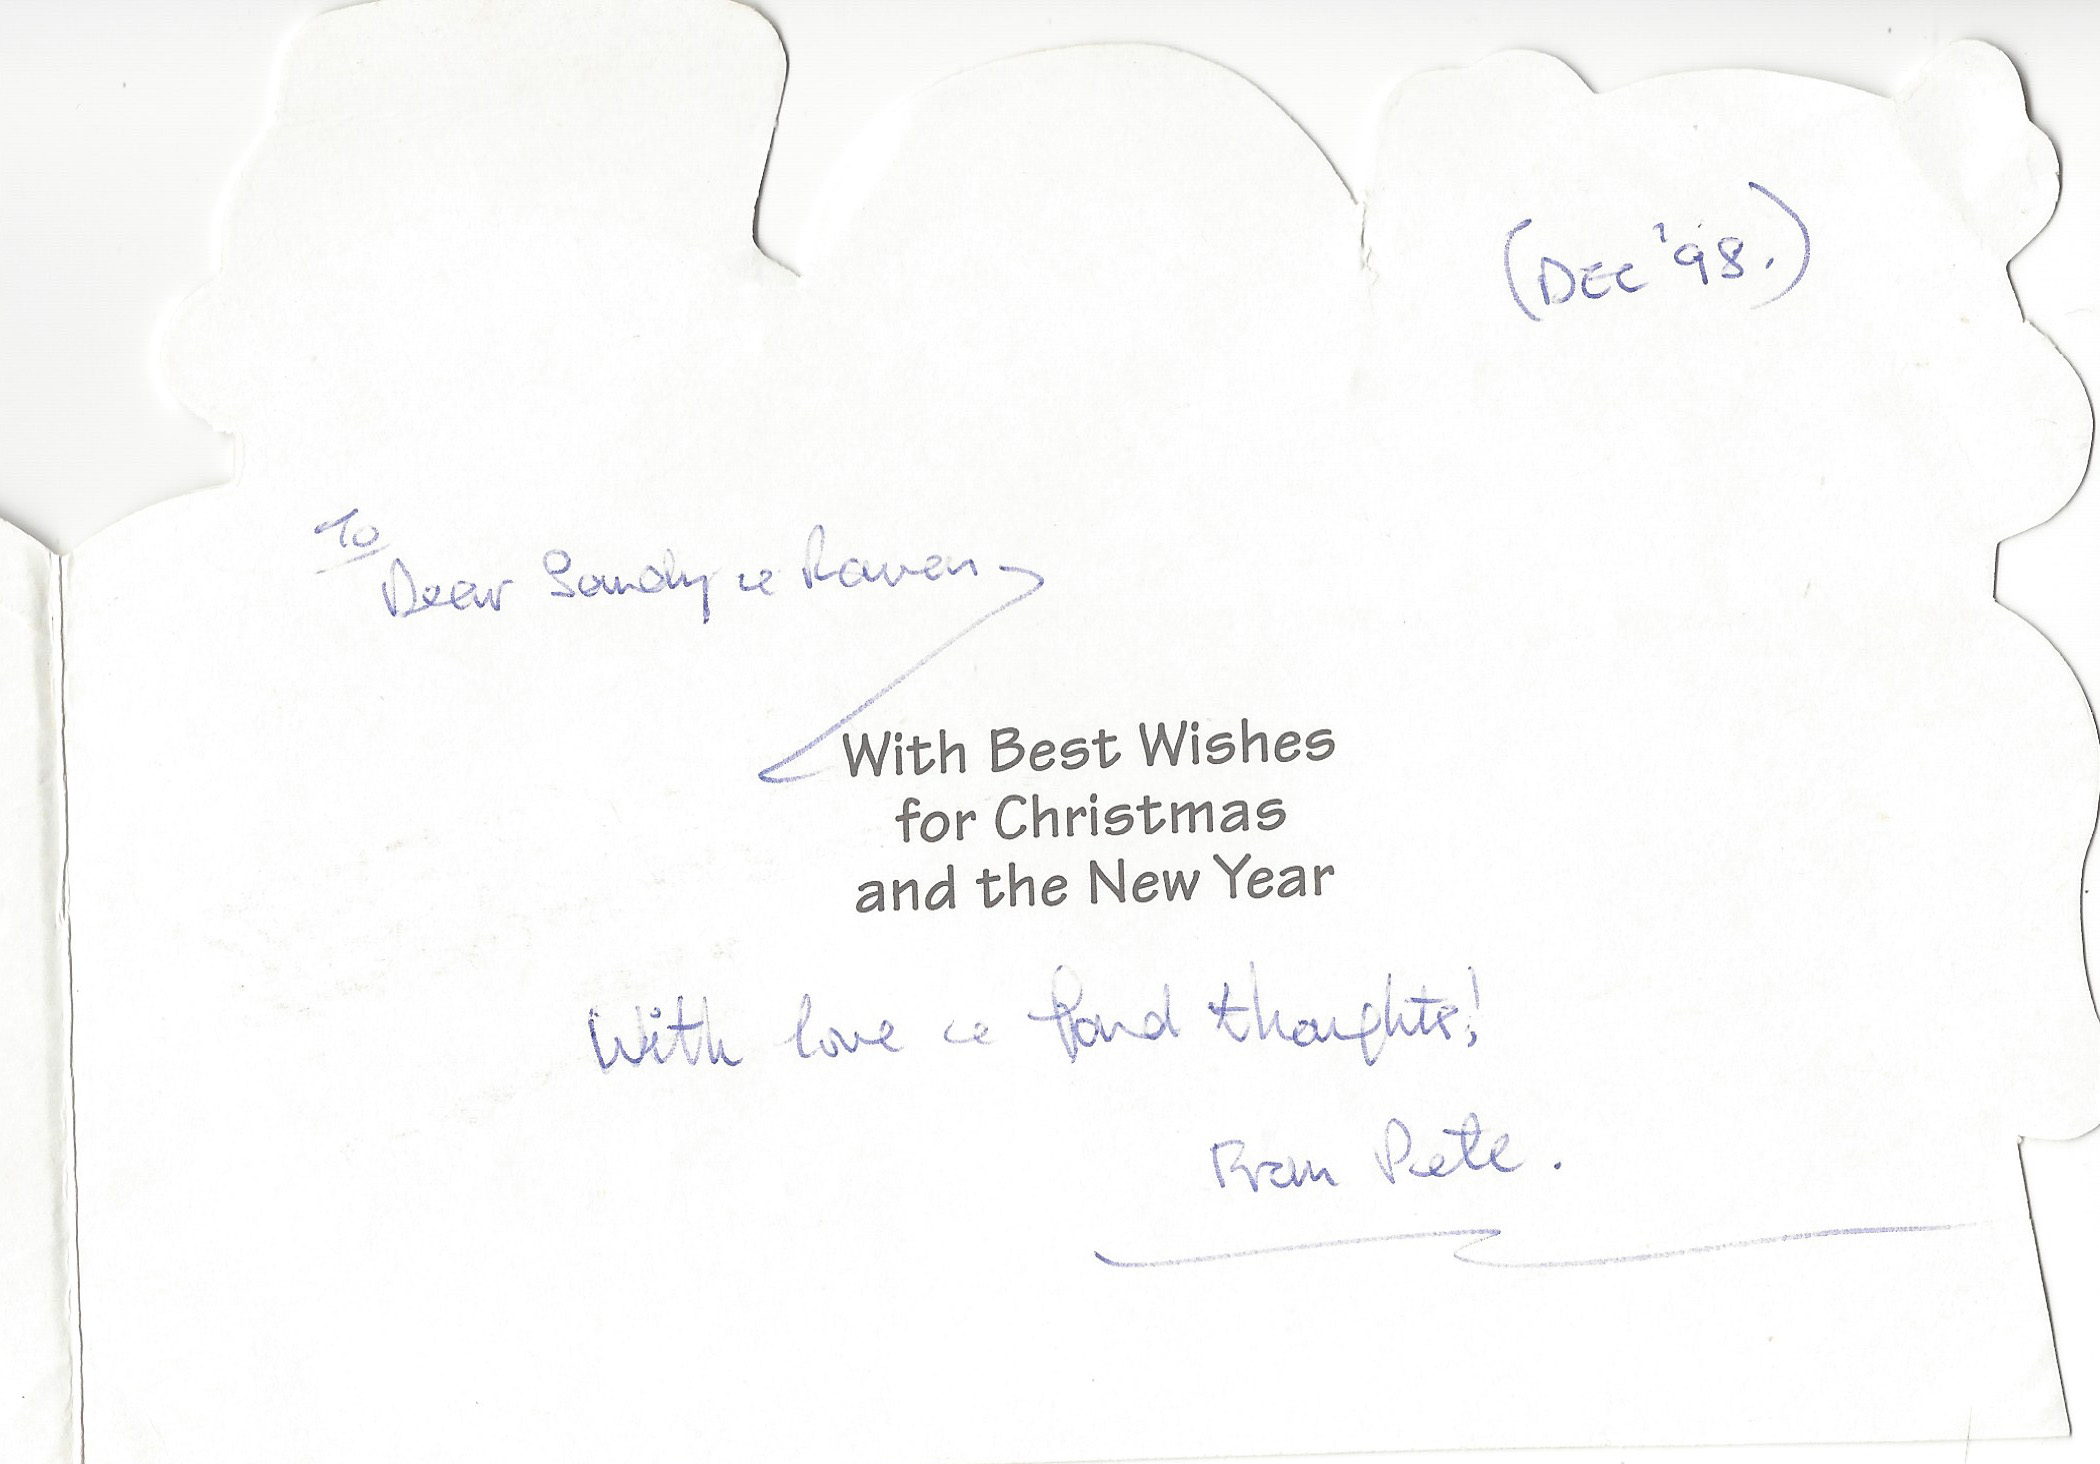 (DEC '98.)
To
Dear Sandy & Raven
With Best Wishes
for Christmas
and the New Year
With love & fond thoughts!
From Pete.